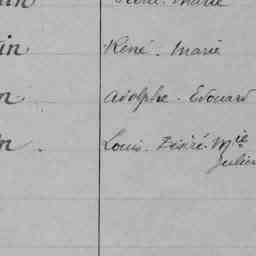 Marie
in
Réné - Marie
Adolphe - Edouard
Louis - Désiré - Mie
Julien